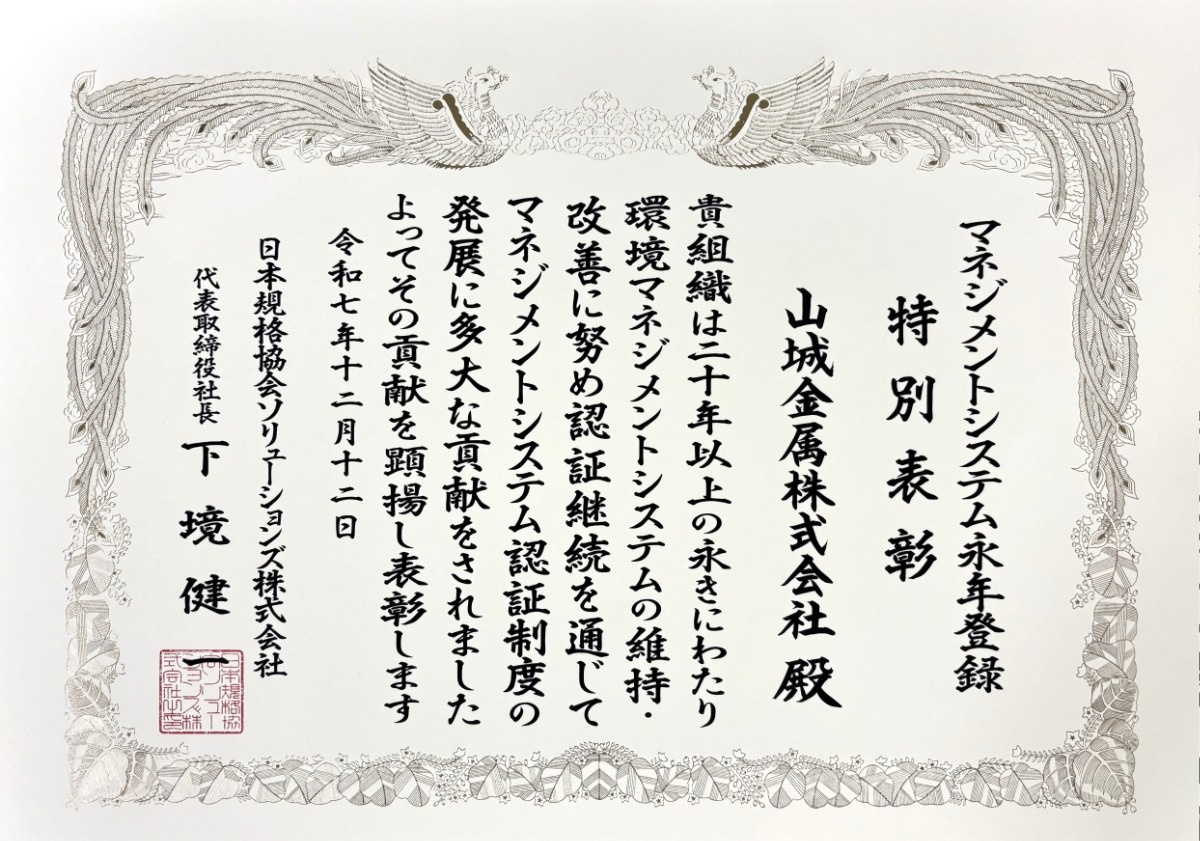 マネジメントシステム永年登録
特別表彰
山城金属株式会社 殿
貴組織は二十年以上の永きにわたり
環境マネジメントシステムの維持・
改善に努め認証継続を通じて
マネジメントシステム認証制度の
発展に多大な貢献をされました
よってその貢献を顕揚し表彰します
令和七年十二月十二日
日本規格協会ソリューションズ株式会社
代表取締役社長 下境健一
日本規格協
会ソリュー
ションズ株
式会社之印